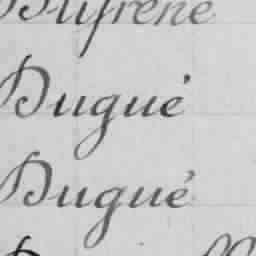 Dufrene
Dugué
Dugué